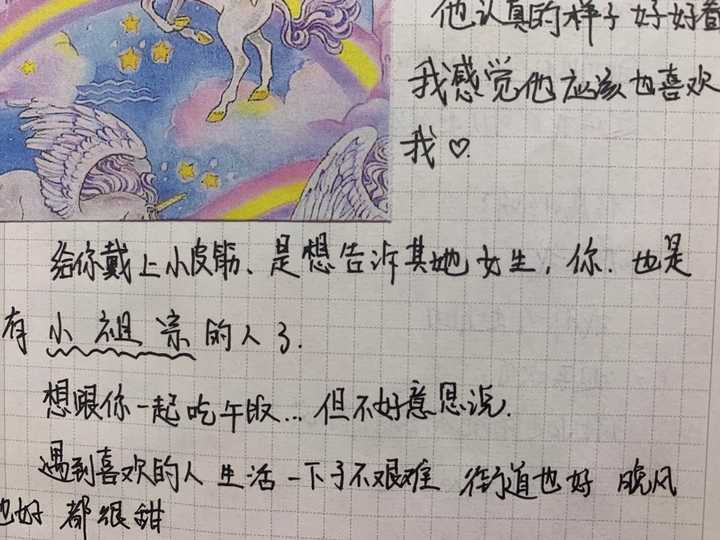 他认真的样子好好看
我感觉他应该也喜欢
我♡.
给你戴上小皮筋、是想告诉其她女生,你.也是
有小祖宗的人了.
想跟你一起吃午饭...但不好意思说.
遇到喜欢的人 生活一下子不艰难 街道也好 晚风
也好 都很甜